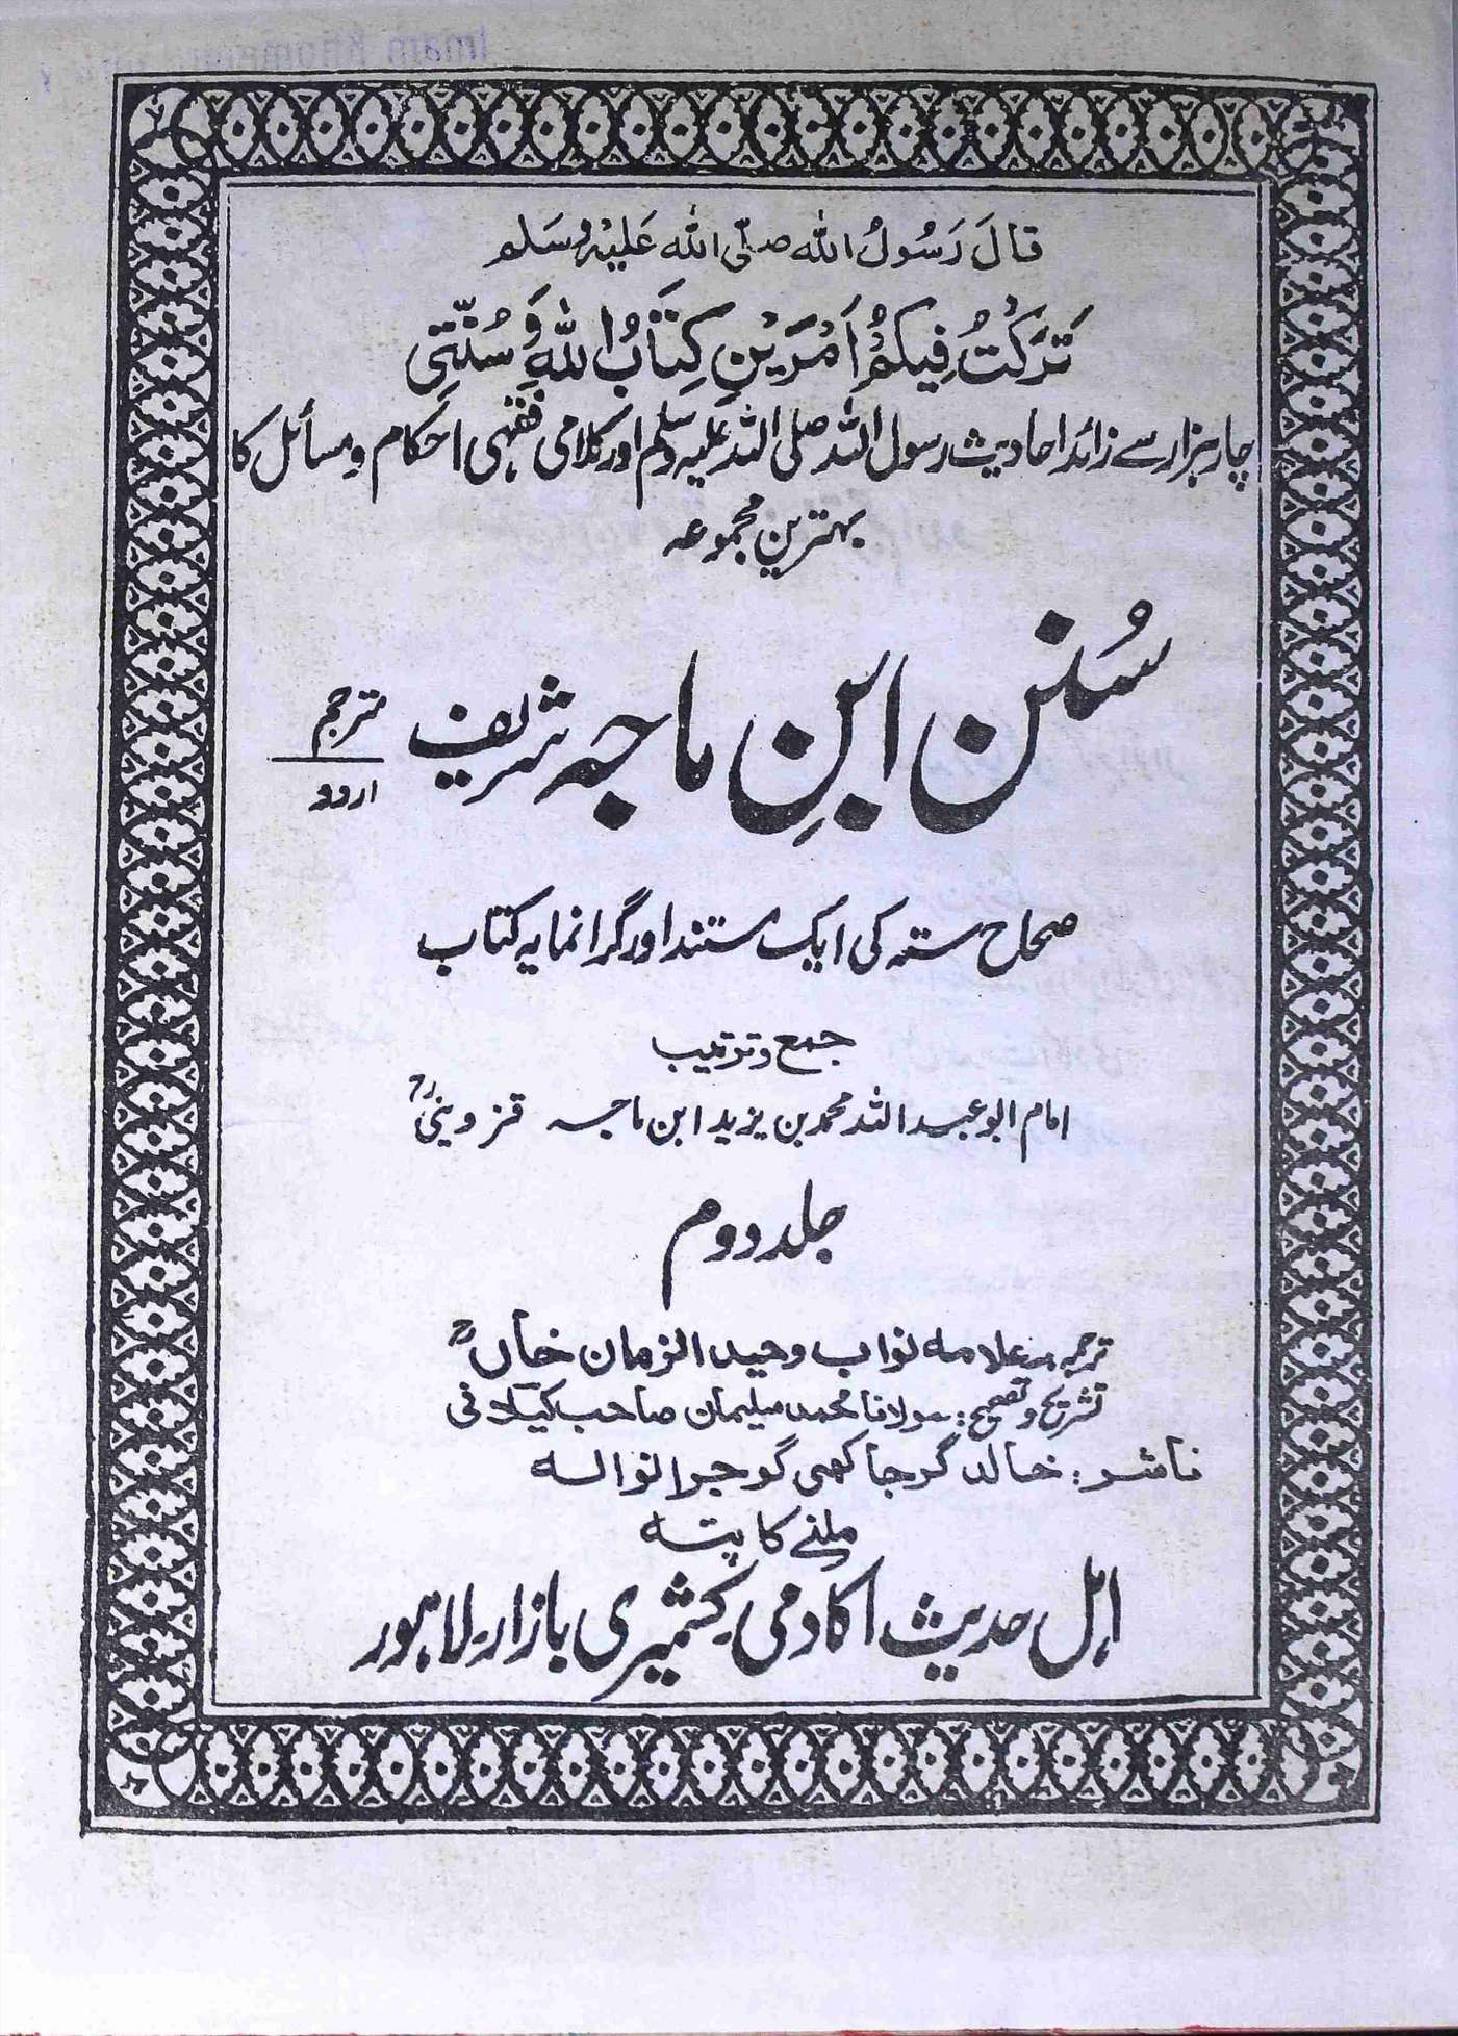 قَالَ رَسُولُ اللہ صلّی اللہ عَلیْہِ وَسَلم
تَرَکْتُ فِیکُمْ اَمْرَیْنِ کِتَابُ اللہِ وَ سُنَّتِی
چار ہزار سے زائد احادیث رسول اللہ صلی اللہ علیہ وسلم اور کلامی فقہی احکام و مسائل کا
بہترین مجموعہ
سُنن ابنِ ماجہ شریف مترجم
اردو
صحاح ستہ کی ایک مستند اور گرانمایہ کتاب
جمع و ترتیب
امام ابو عبد اللہ محمد بن یزید ابن ماجہ قزوینیؒ
جلد دوم
ترجمہ علامہ نواب وحید الزمان خاںؒ
تشریح و تصحیح : مولانا محمد سلیمان صاحب کیلانی
ناشر : خالد گرجاکھی گوجرانوالہ
ملنے کا پتہ
اہل حدیث اکادمی کشمیری بازار۔ لاہور